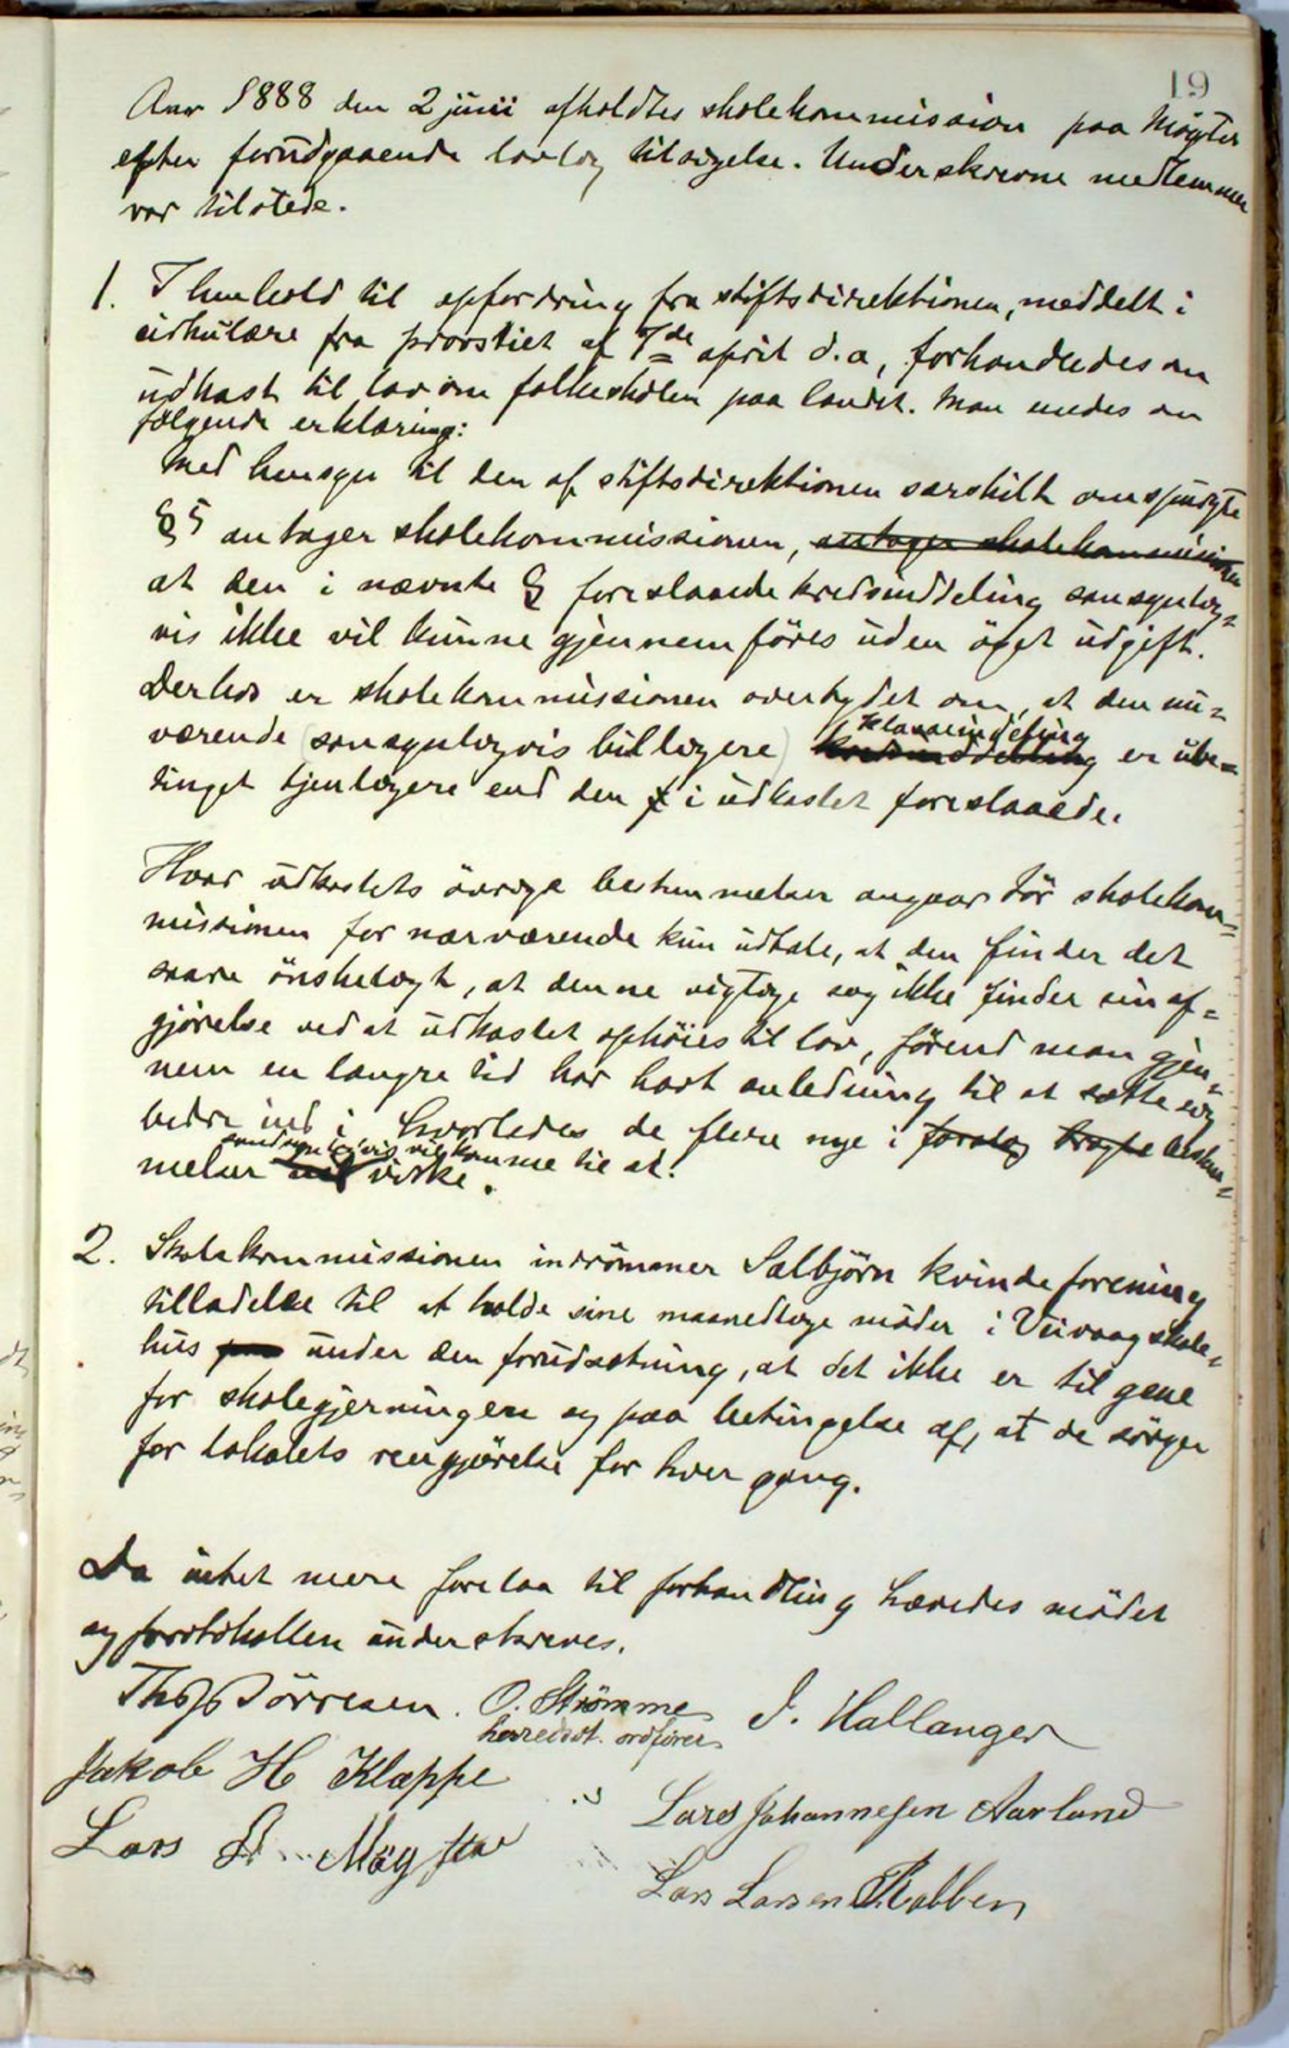 19
Aar 1888 den 2 juni afholdtes skolekommission paa Mögster
efter forudgaaende lovlig tilsigelse. Underskrevne medlemmer
var tilstede.
1. I henhold til opfordring fra stiftsdirektionen, meddelt i
cirkulære fra provstiet af 7de april d.a, forhandledes om
udkast til lov om folkeskolen paa landet. Man enedes om
følgende erklæring:
Med hensyn til den af stiftsdirektionen særskilt omspurgte
§ 5 antager skolekommissionen, antager skolekommissionen
at den i nævnte § foreslaaede kredsinddeling sansynlig-
vis ikke vil kunne gjennemföres uden öget udgift.
Derhos er skolekommissionen overbydet om, at den nu-
klasseindeling
værende (sansynligvis billigere) kredsinddeling er ube-
tinget tjenligere end den i udkastet foreslaaede.
Hvad udkastets övrige bestemmelser angaar tör skolekom-
missionen for nærværende kun udtale, at den finder det
saare önskeligt, at denne vigtige sag ikke finder sin af-
gjörelse ved at udkastet ophöies til lov, förend man gjen-
nem en længre tid har havt anledning til at sætte sig
bedre ind i hvorledes de flere nye i forslag bragte bestem-
sandsynligvis vil komme til at
melser vil virke.
2. Skolekommissionen indrömmer Salbjörn kvindeforening
tilladelse til at holde sine maanedlige möder i Vivaag skole-
hus paa under den forudsætning, at det ikke er til gene
for skolegjerningen og paa betingelse af, at de sörger
for lokalets rengjörelse for hver gang.
Da intet mere forelaa til forhandling hævedes mödet
og protokollen underskreves.
Ths Törresen. O. Strömme J. Hallanger
herredst. ordförer
Jakob H Klæppe
Lars Johannesen Aarland
Lars Mögster
Lars Larsen Rabben